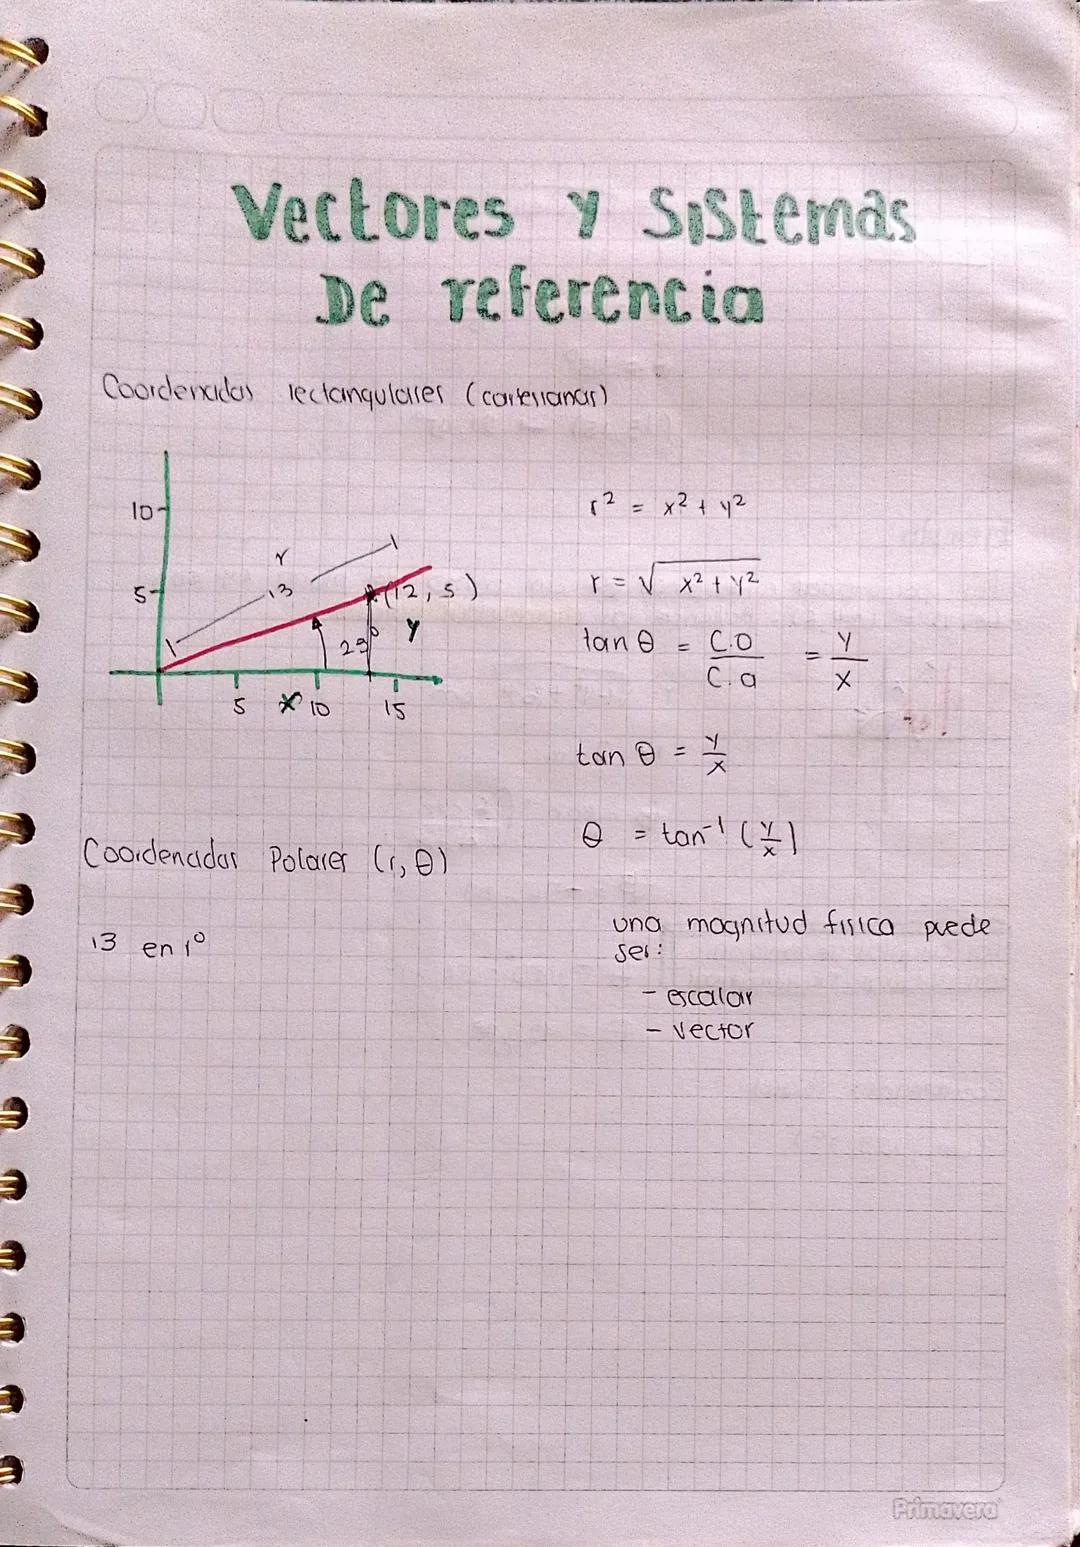 Vectores y Sistemas
De referencia
Coordenadas rectangulares (cartesianas)
10
5
r
13
(12, 5)
23°
y
5 x 10 15
r² = x² + y²
r = √x² + y²
tan θ = C.O / C.a = y / x
tan θ = y / x
θ = tan⁻¹ (y/x)
Coordenadas Polares (r, θ)
13 en 1°
una magnitud fisica puede
ser:
- escalar
- vector
Primavera